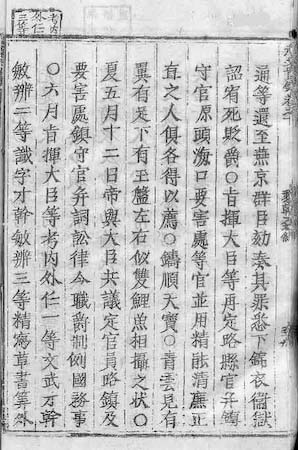 考內
外仁
三等
通等還至燕京群臣劾奏其罪悉下錦衣衛獄
詔宥死貶爵○旨揮大臣等再定路縣官并鎮
守官原頭海口要害處等官並用精能清廉正
直之人俱各得以薦○鑄順天寶○青見有
翼有足下有玉盤左右似雙鯉魚相攝之状○
夏五月十二日帝與大臣共議定官員路鎮及
要害處鎮守官并詞訟律令職爵制例國務事
○六月旨揮大臣等考內外仁一等文武才幹
敏辨二等識字才幹敏辨三等精寫草書筭外